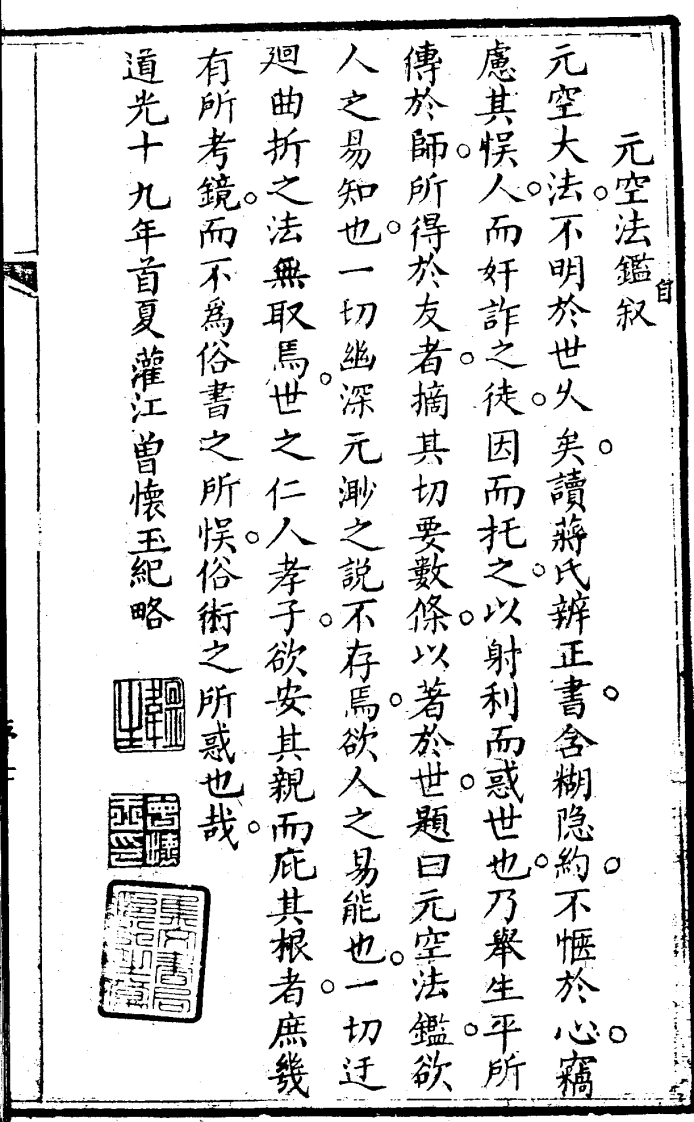 元空法鑑叙
元空大法不明於世久矣讀蔣氏辨正書含糊隐約不愜於心竊
慮其悞人而奸詐之徒因而托之以射利而惑世也乃舉生平所
傳於師所得於友者摘其切要數條以著於世題曰元空法鑑欲
人之易知也一切幽深元渺之説不存焉欲人之易能也一切迂
廻曲折之法無取焉世之仁人孝子欲安其親而庇其根者庶幾
有所考鏡而不為俗書之所悞俗術之所惑也哉
道光十九年首夏灌江曽懷玉紀略